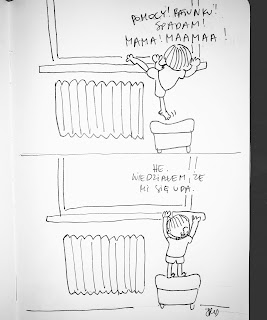 POMOCY! RATUNKU!
SPADAM!
MAMA! MAAMAA!
HE,
WIEDZIAŁEM, ŻE
MI SIĘ UDA.